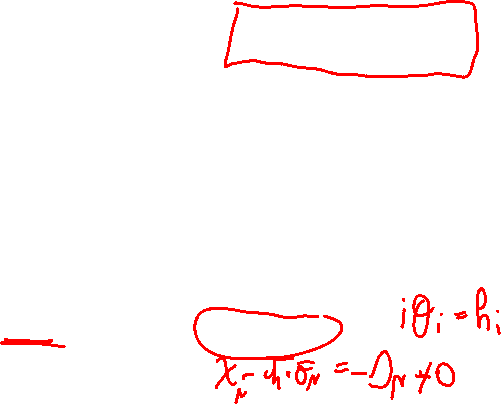 iθᵢ = hᵢ
χ_μ - h·σ_μ = -D_μ ≠ 0